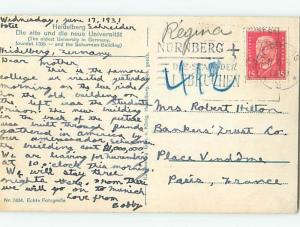 Wednesday, June 17, 1931
Hotel Schreider
Heidelberg
Die alte und die neue Universität
(The oldest University in Germany,
founded 1386 - and the Schurman-Building)
Heidelberg, Germany
Dear Mother
This is the famous
college we visited yesterday
morning on the bus ride
of the old building on
the left was the students
prison. The new building
in the back of the picture
was built through funds
gathered from America by
our ambassador
the building cost
We are leaving for Nuremberg
at 10 o'clock this morning.
We will stay three
nights there, from there
we will go on to Munich
Love from
Bobby
Nr. 7434. Echte Fotografie
Regina
NÜRNBERG
DIE STADT DER
412
15
Mrs. Robert Hilton
Bankers' Trust Co.
Place Vendôme
Paris, France